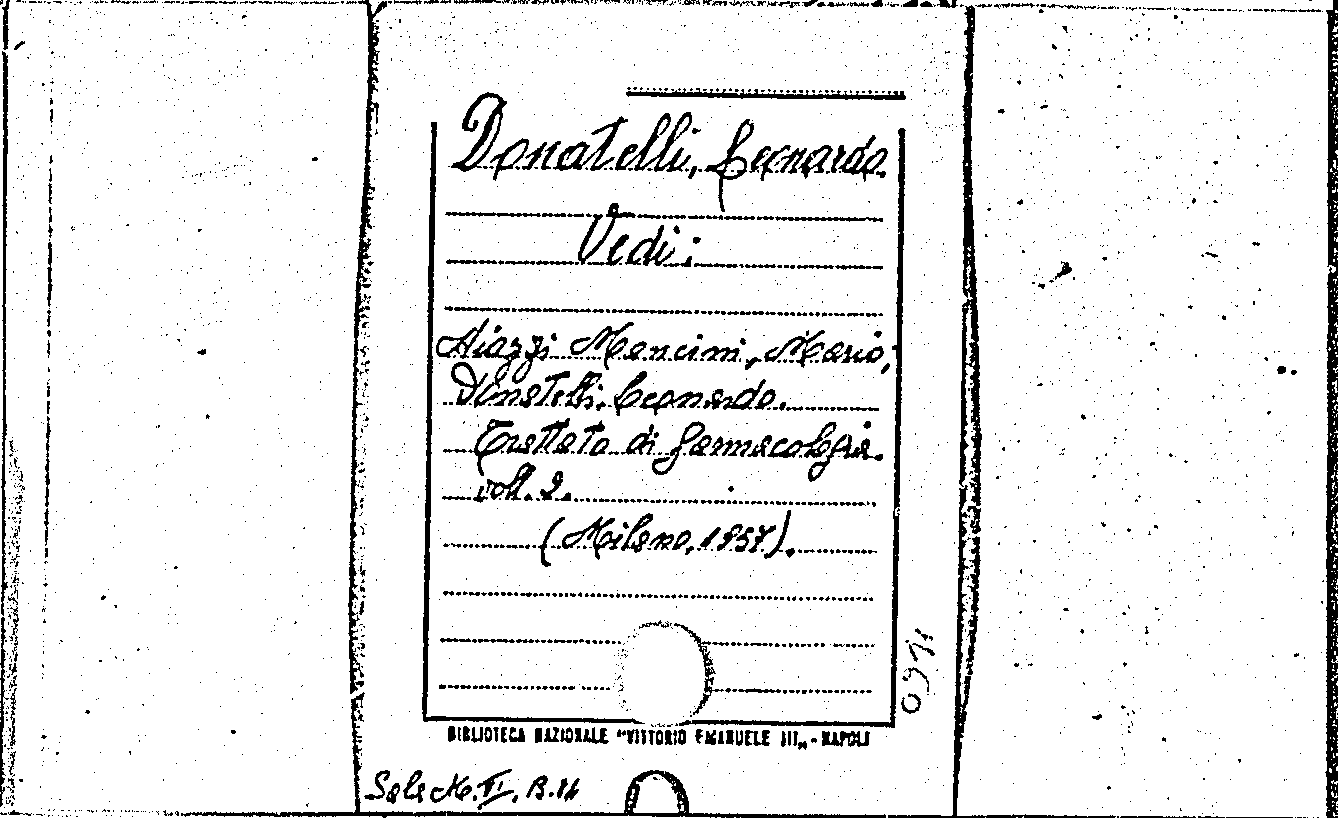 Donatelli, Leonardo.
Vedi:
Aiazzi Mancini, Mario;
Donatelli, Leonardo.
Trattato di farmacologia.
voll. 2.
(Milano, 1957).
BIBLIOTECA NAZIONALE "VITTORIO EMANUELE III„ - NAPOLI
Sala